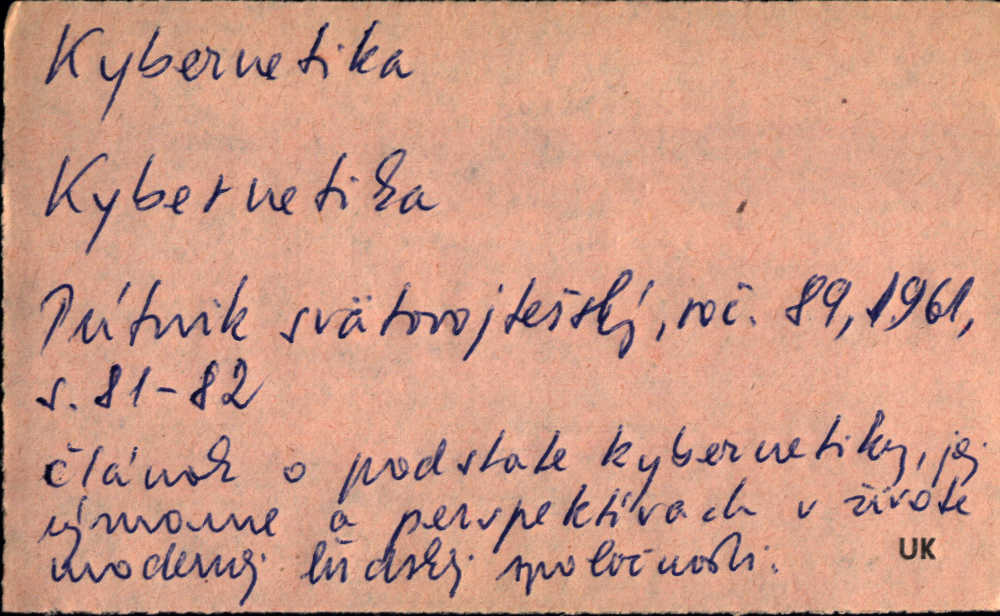 Kybernetika
Kybernetika
Pútnik svätovojtešský, roč. 89, 1961,
s. 81-82
článok o podstate kybernetiky, jej
význame a perspektívach v živote
modernej ľudskej spoločnosti.
UK